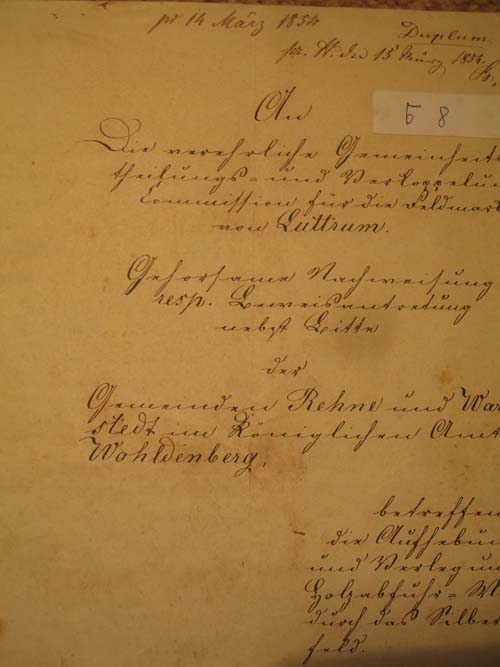 pr 14 März 1854
Duplum.
pr. H. den 15 März 1854.
58
An
Die verehrliche Gemeinheits
theilungs- und Verkoppelun
Commission für die Feldmark
von Luttrum.
Gehorsame Nachweisung
resp. Beweisantretung
nebst Bitte
der
Gemeinden Rehne und War
stedt im Königlichen Amt
Wohldenberg,
betreffen
die Aufhebun
und Verlegun
Holzabfuhr= W
durch das Silber
feld.